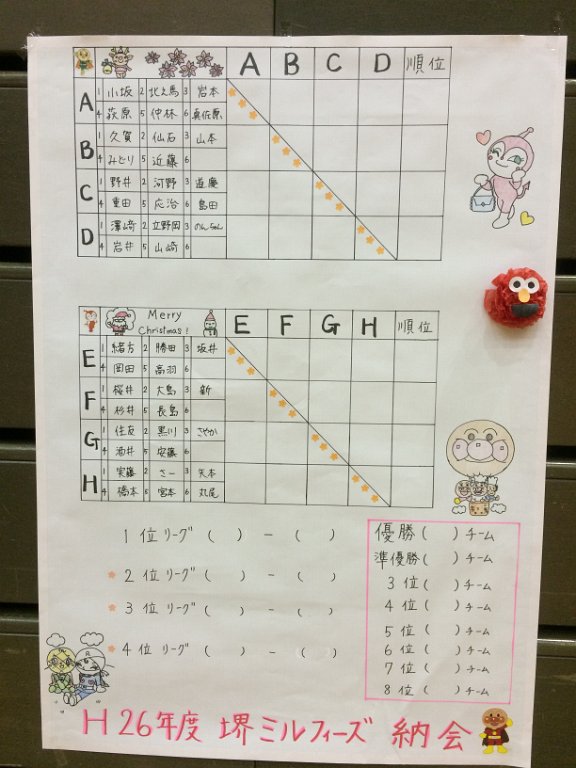 A B C D 順位
A 1 小坂 2 北之馬 3 岩本
4 荻原 5 仲林 6 真佐原
B 1 久賀 2 仙石 3 山本
4 みどり 5 近藤 6
C 1 野井 2 河野 3 直慶
4 重田 5 応治 6 島田
D 1 澤﨑 2 立野岡 3 のんちゃん
4 岩井 5 山﨑 6
Merry Christmas! E F G H 順位
E 1 緒方 2 勝田 3 坂井
4 岡田 5 高羽 6
F 1 桜井 2 大島 3 新
4 杉井 5 長島 6
G 1 住友 2 黒川 3 さやか
4 酒井 5 安藤 6
H 1 実藤 2 さー 3 矢本
4 橋本 5 宮本 6 丸尾
1位リーグ ( ) - ( )
2位リーグ ( ) - ( )
3位リーグ ( ) - ( )
4位リーグ ( ) - ( )
優勝 ( ) チーム
準優勝 ( ) チーム
3位 ( ) チーム
4位 ( ) チーム
5位 ( ) チーム
6位 ( ) チーム
7位 ( ) チーム
8位 ( ) チーム
H26年度 堺ミルフィーズ 納会